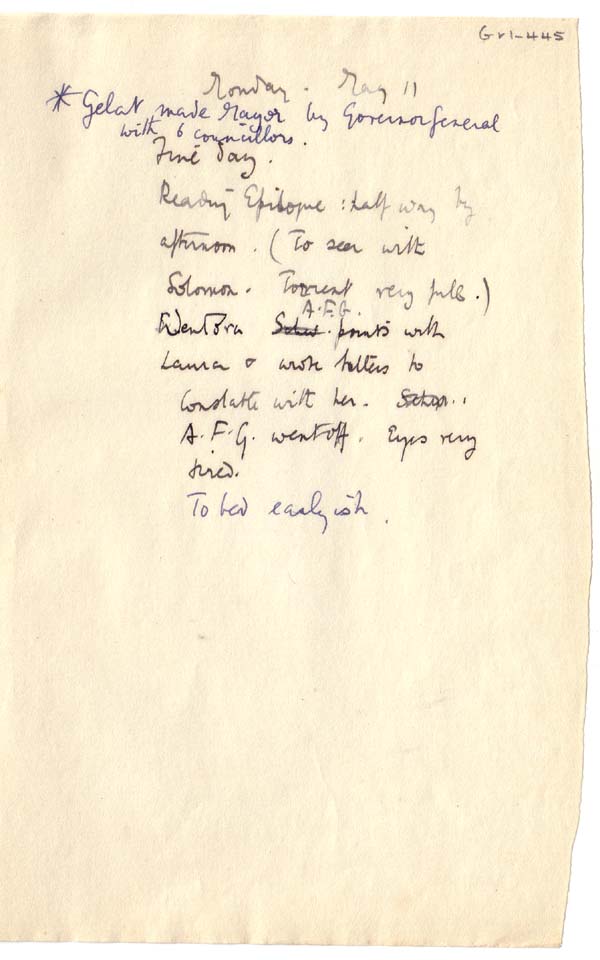 Gv1-445
Monday. May 11
* Gelat made Mayor by Governor General
with 6 councillors.
Fine day.
Reading Epilogue: half way by
afternoon. (To see with
Solomon. Torrent very full.)
A.F.G.
Went over points with
Laura & wrote letters to
Constable with her.
A.F.G. went off. Eyes very
tired.
To bed earlyish.